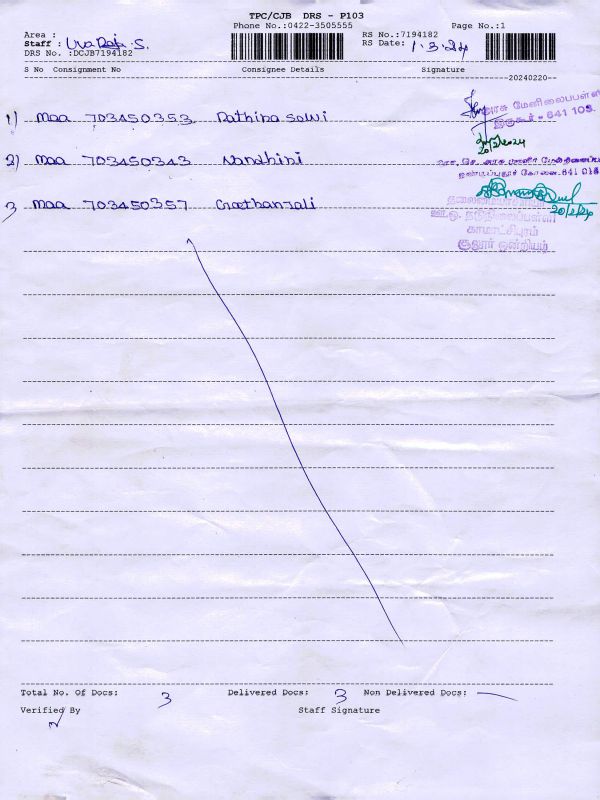 TPC/CJB DRS - P103
Phone No.:0422-3505555
Page No.:1
Area :
RS No.:7194182
Staff :
RS Date: 1.3.24
DRS No. :DCJB7194182
S No Consignment No Consignee Details Signature
20240220
1) maa 703450353 Rathina selvi
அரசு மேனிலைப்பள்ளி
இருகூர் - 641 103.
20/2/2024
2) maa 703450343 Nandhini
3 maa 703450357 Geethanjali
20/2/24
காமாட்சிபுரம்
சூலூர் ஒன்றியம்
Total No. Of Docs: 3 Delivered Docs: 3 Non Delivered Docs: —
Verified By Staff Signature